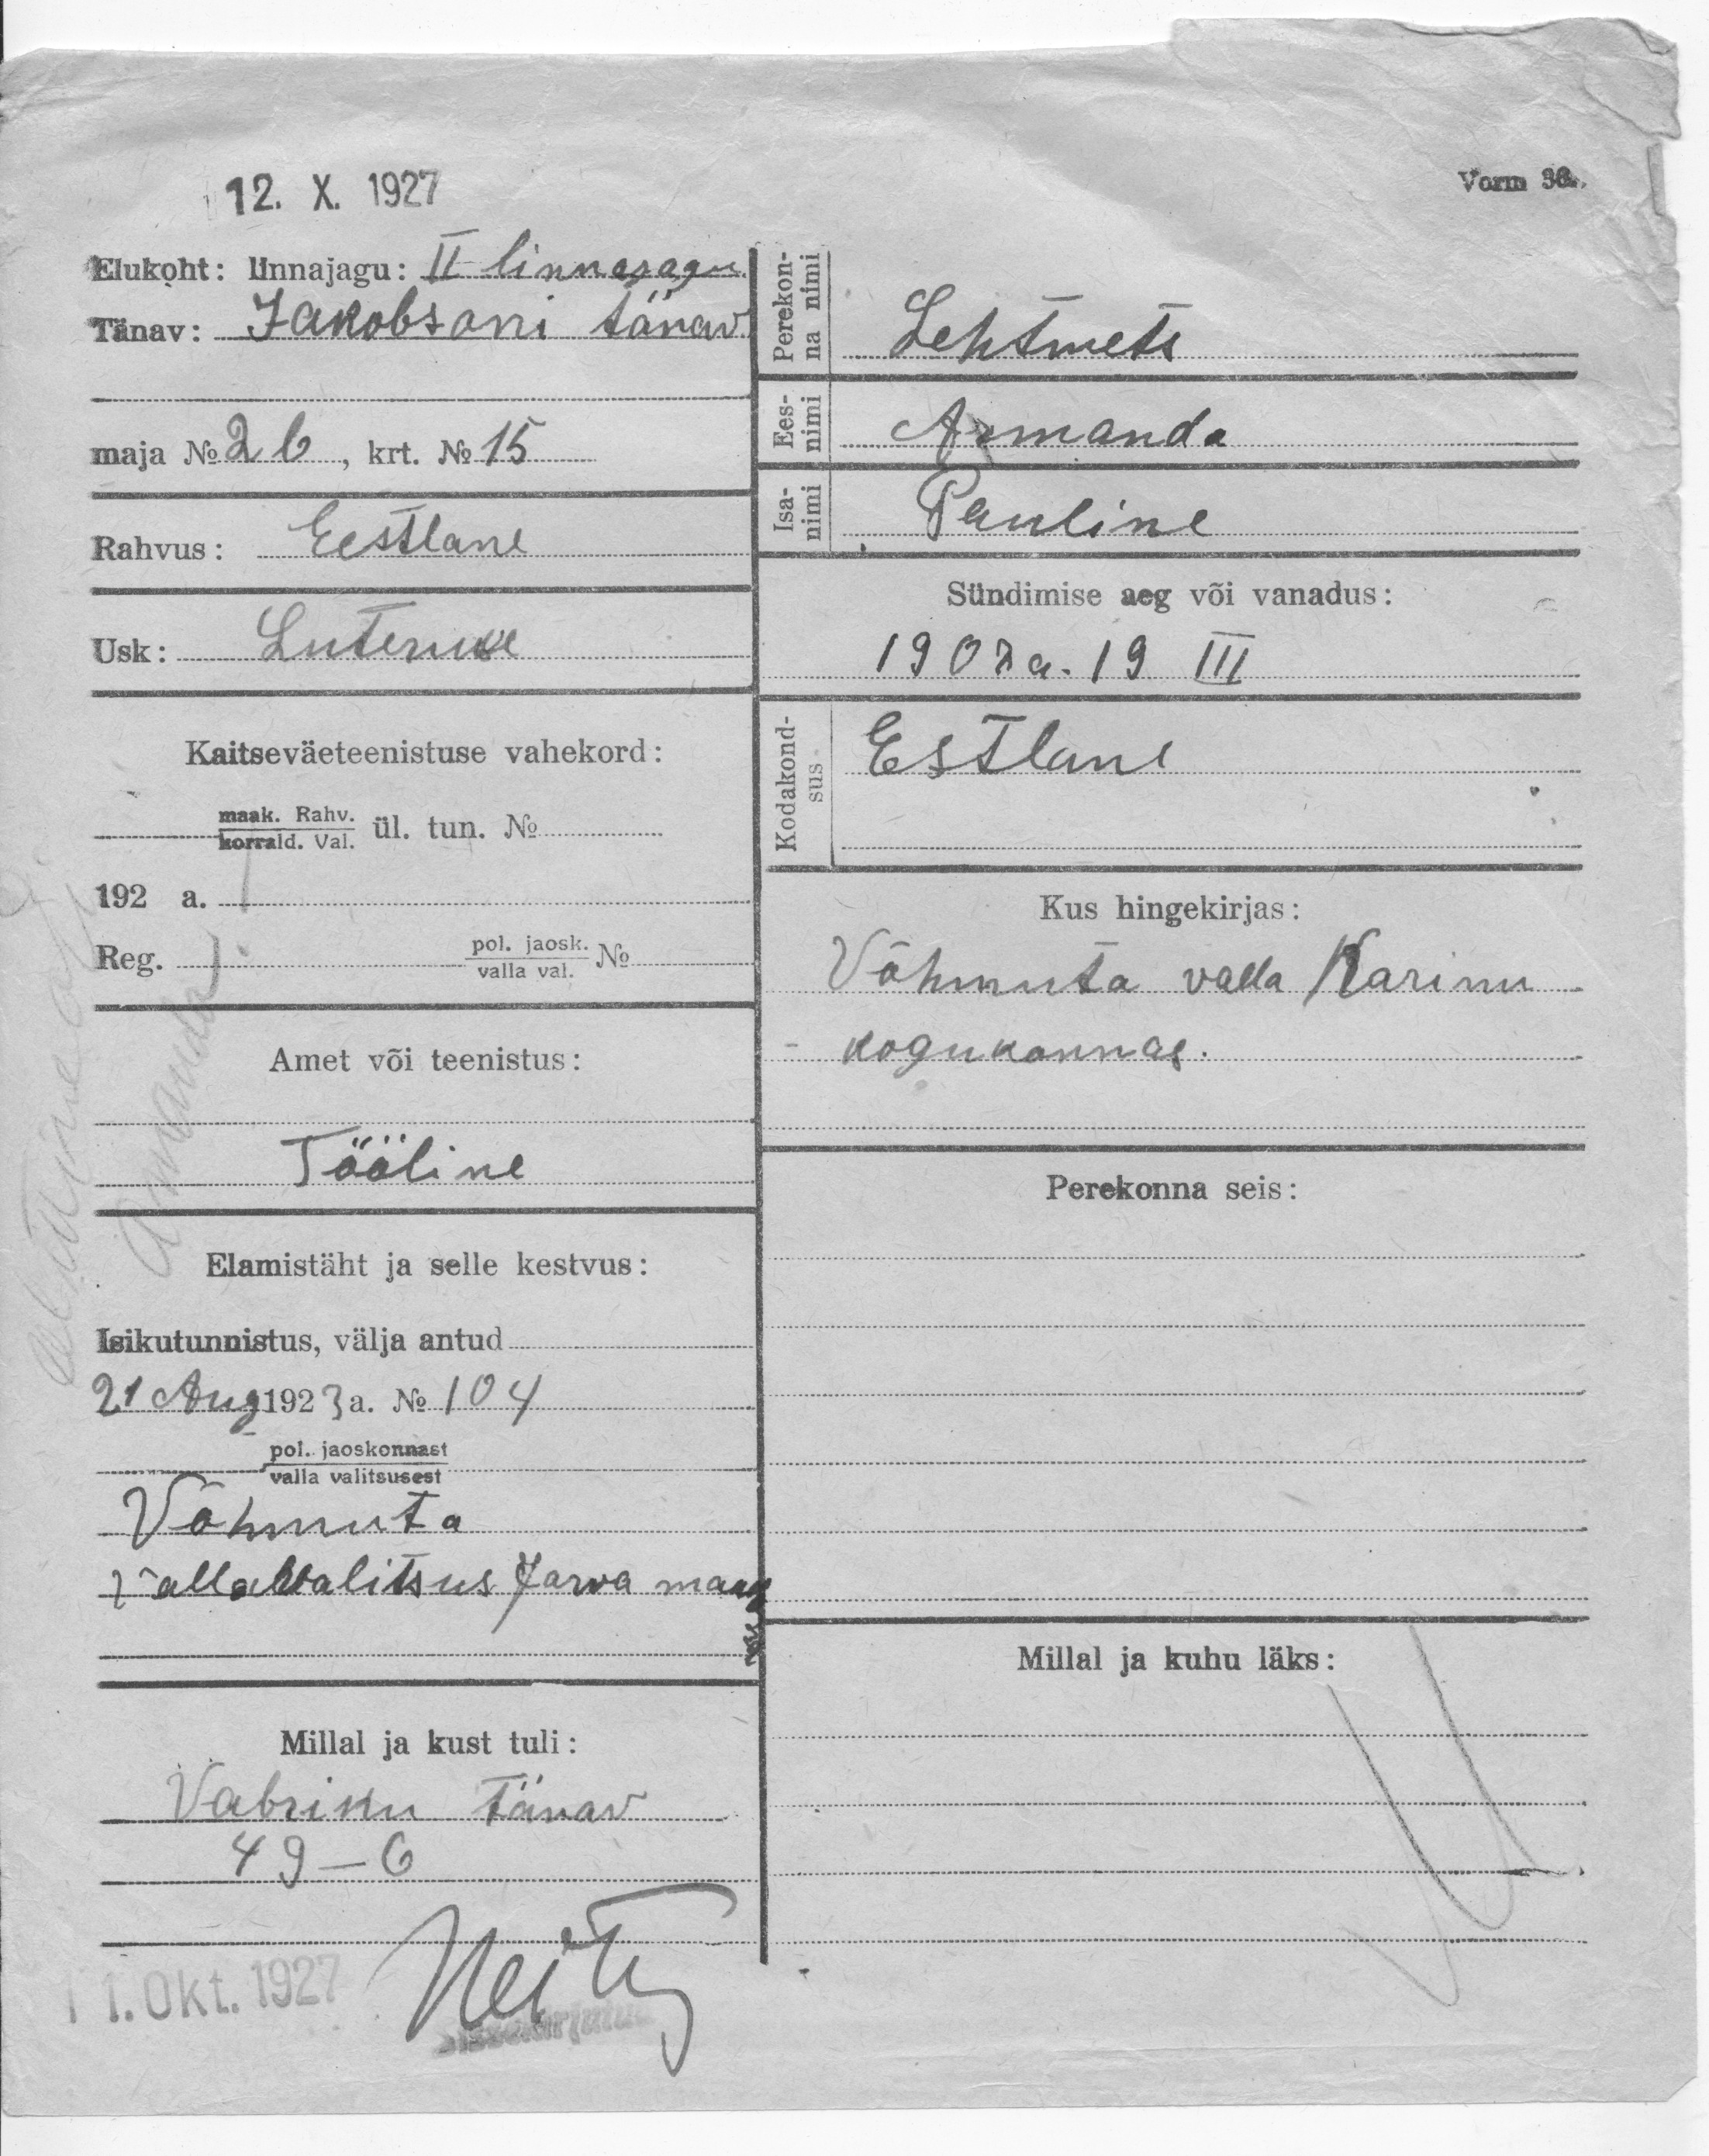 12. X. 1927
Vorm 36.
Elukoht: linnajagu: II linnajagu
Tänav: Jakobsoni tänav
maja № 2b, krt. № 15
Rahvus: Eestlane
Usk: Luteruse
Kaitseväeteenistuse vahekord:
maak. Rahv.
korrald. Val. ül. tun. №
192 a.
Reg. pol. jaosk. №
valla val.
Amet või teenistus:
Tööline
Elamistäht ja selle kestvus:
Isikutunnistus, välja antud
21 Aug 1923 a. № 104
pol. jaoskonnast
valla valitsusest
Võhmuta
vallavalitsus Jarva maa
Millal ja kust tuli:
Vabriku tänav
49—6
11. Okt. 1927
Sissekirjutud
Perekon-
na nimi
Lehtmets
Ees-
nimi
Armanda
Isa-
nimi
Pauline
Sündimise aeg või vanadus:
1907 a. 19 III
Kodakond-
sus
Estlane
Kus hingekirjas:
Võhmuta valla Karinu
kogukonnas.
Perekonna seis:
Millal ja kuhu läks:
Armanda